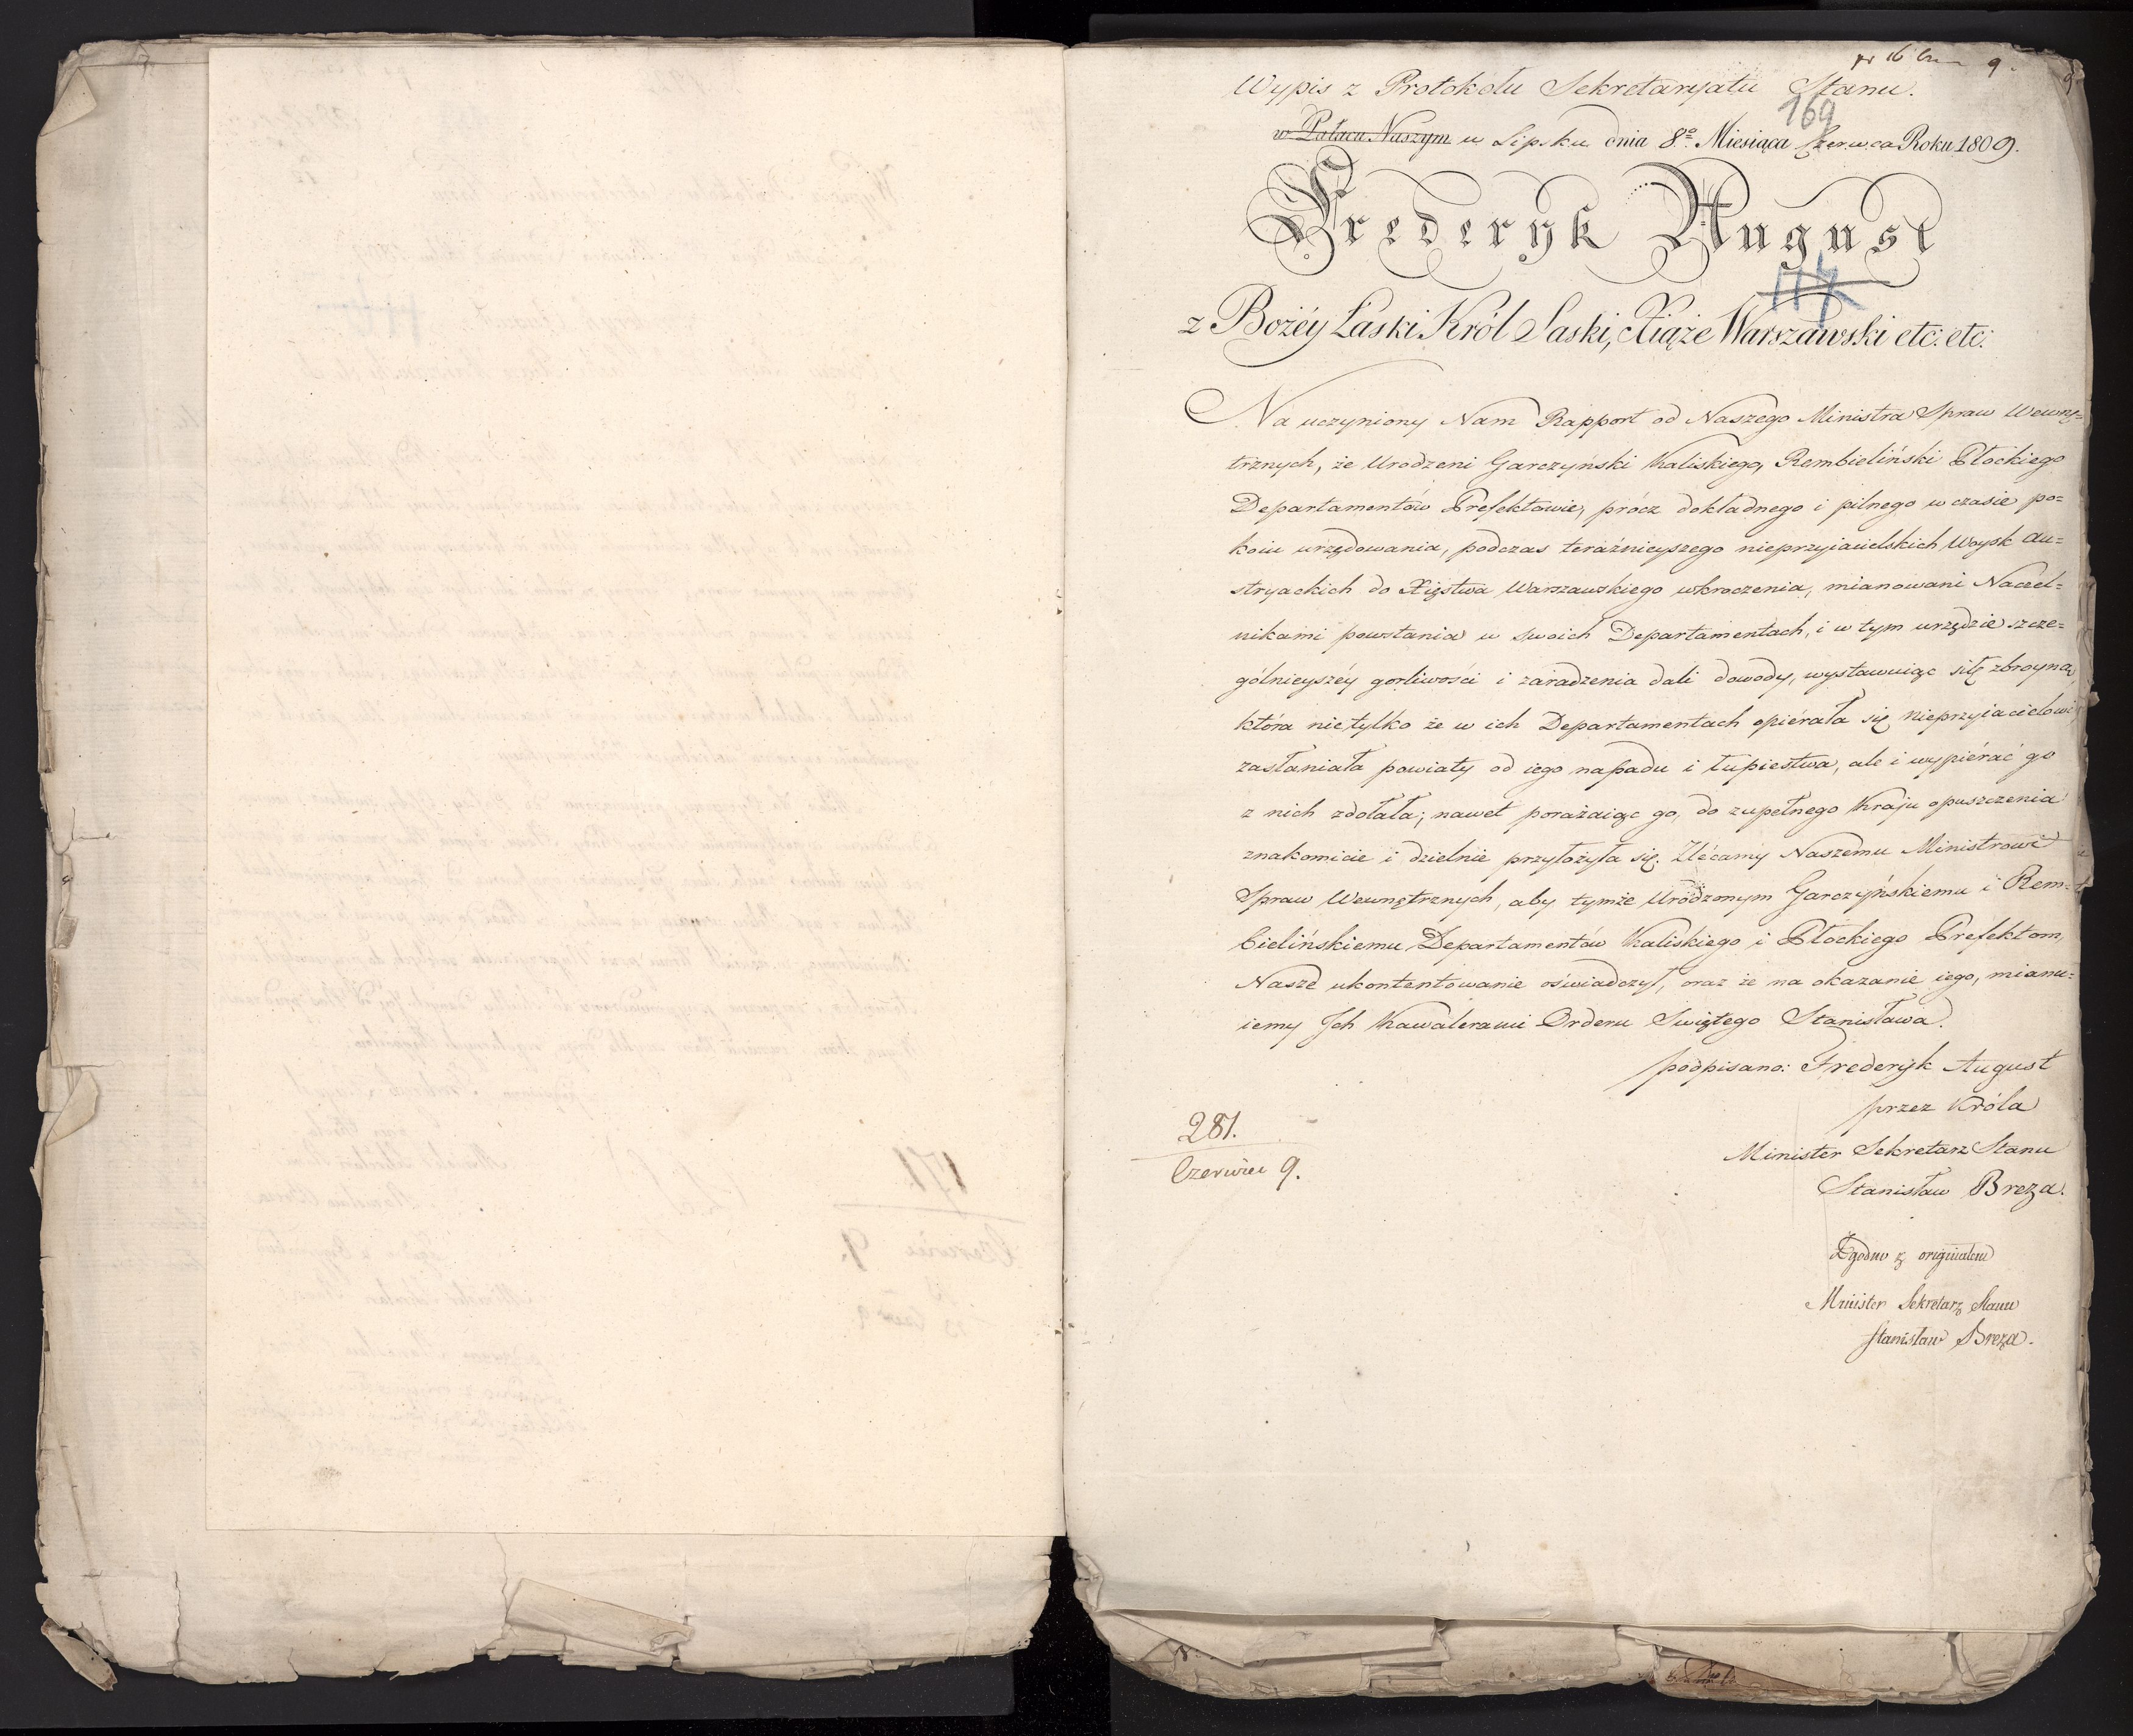 pr 16 Cze 9.
9
Wypis z Protokołu Sekretaryatu Stanu.
169
w Pałacu Naszym w Lipsku dnia 8º Miesiąca Czerwca Roku 1809.
Frederyk August
z Bożéy Łaski Król Saski, Xiąże Warszawski etc: etc:
Na uczyniony Nam Rapport od Naszego Ministra Spraw Wewnę=
trznych, że Urodzeni Garczyński Kaliskiego, Rembieliński Płockiego
Departamentów Prefektowie, prócz dokładnego i pilnego w czasie po=
koiu urzędowania, podczas teraźnieyszego nieprzyiacielskich Woysk Au=
stryackich do Xięstwa Warszawskiego wkroczenia, mianowani Naczel=
nikami powstania w swoich Departamentach, i w tym urzędzie szcze=
gólnieyszéy gorliwości i zaradzenia dali dowody, wystawuiąc siłę zbroyną,
która nietylko że w ich Departamentach opiérała się nieprzyiacielowi
zasłaniała powiaty od iego napadu i łupiestwa, ale i wypiérać go
z nich zdołała; nawet porażaiąc go, do zupełnego Kraju opuszczenia
znakomicie i dzielnie przyłożyła się. Zlécamy Naszemu Ministrowi
Spraw Wewnętrznych, aby tymże Urodzonym Garczyńskiemu i Rem=
bielińskiemu Departamentów Kaliskiego i Płockiego Prefektom,
Nasze ukontentowanie oświadczył, oraz że na okazanie iego, mianu=
iemy Ich Kawalerami Orderu Swiętego Stanisława.
podpisano: Frederyk August
przez Króla
Minister Sekretarz Stanu
Stanisław Breza.
281.
Czerwiec 9.
Zgodno z oryginałem
Minister Sekretarz Stanu
Stanisław Breza.